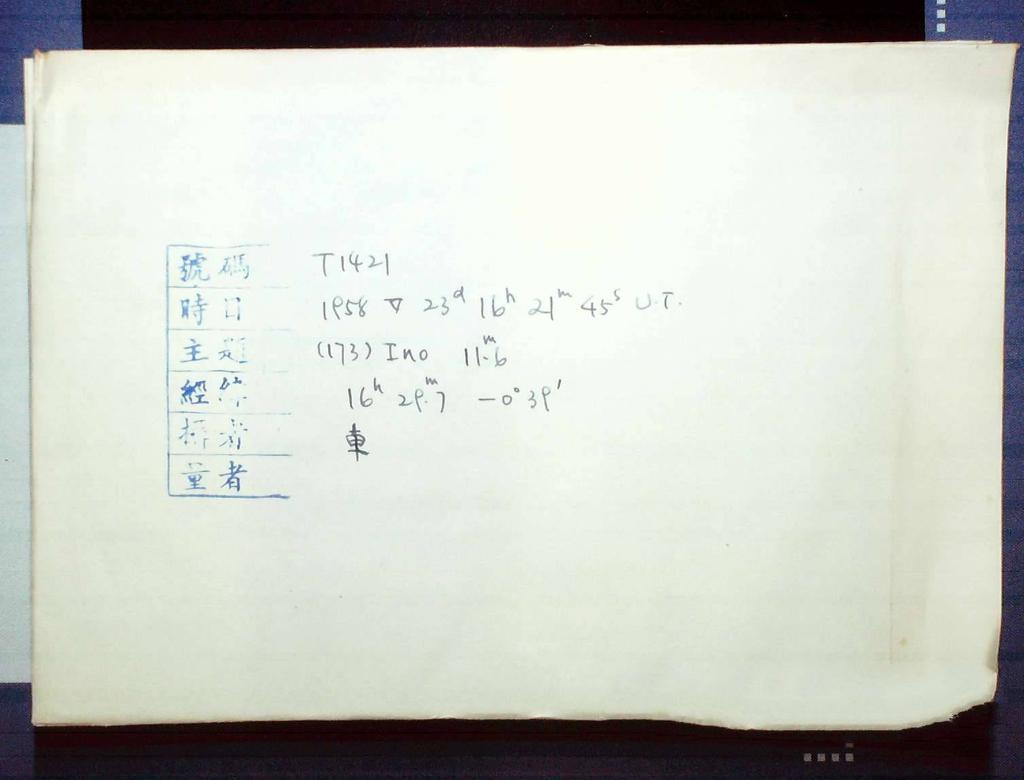 號碼 T1421
時日 1958 V 23ᵈ 16ʰ 21ᵐ 45ˢ U.T.
主題 (173) Ino 11ᵐ.6
經緯 16ʰ 29ᵐ.7 -0°39′
攝者 東
量者